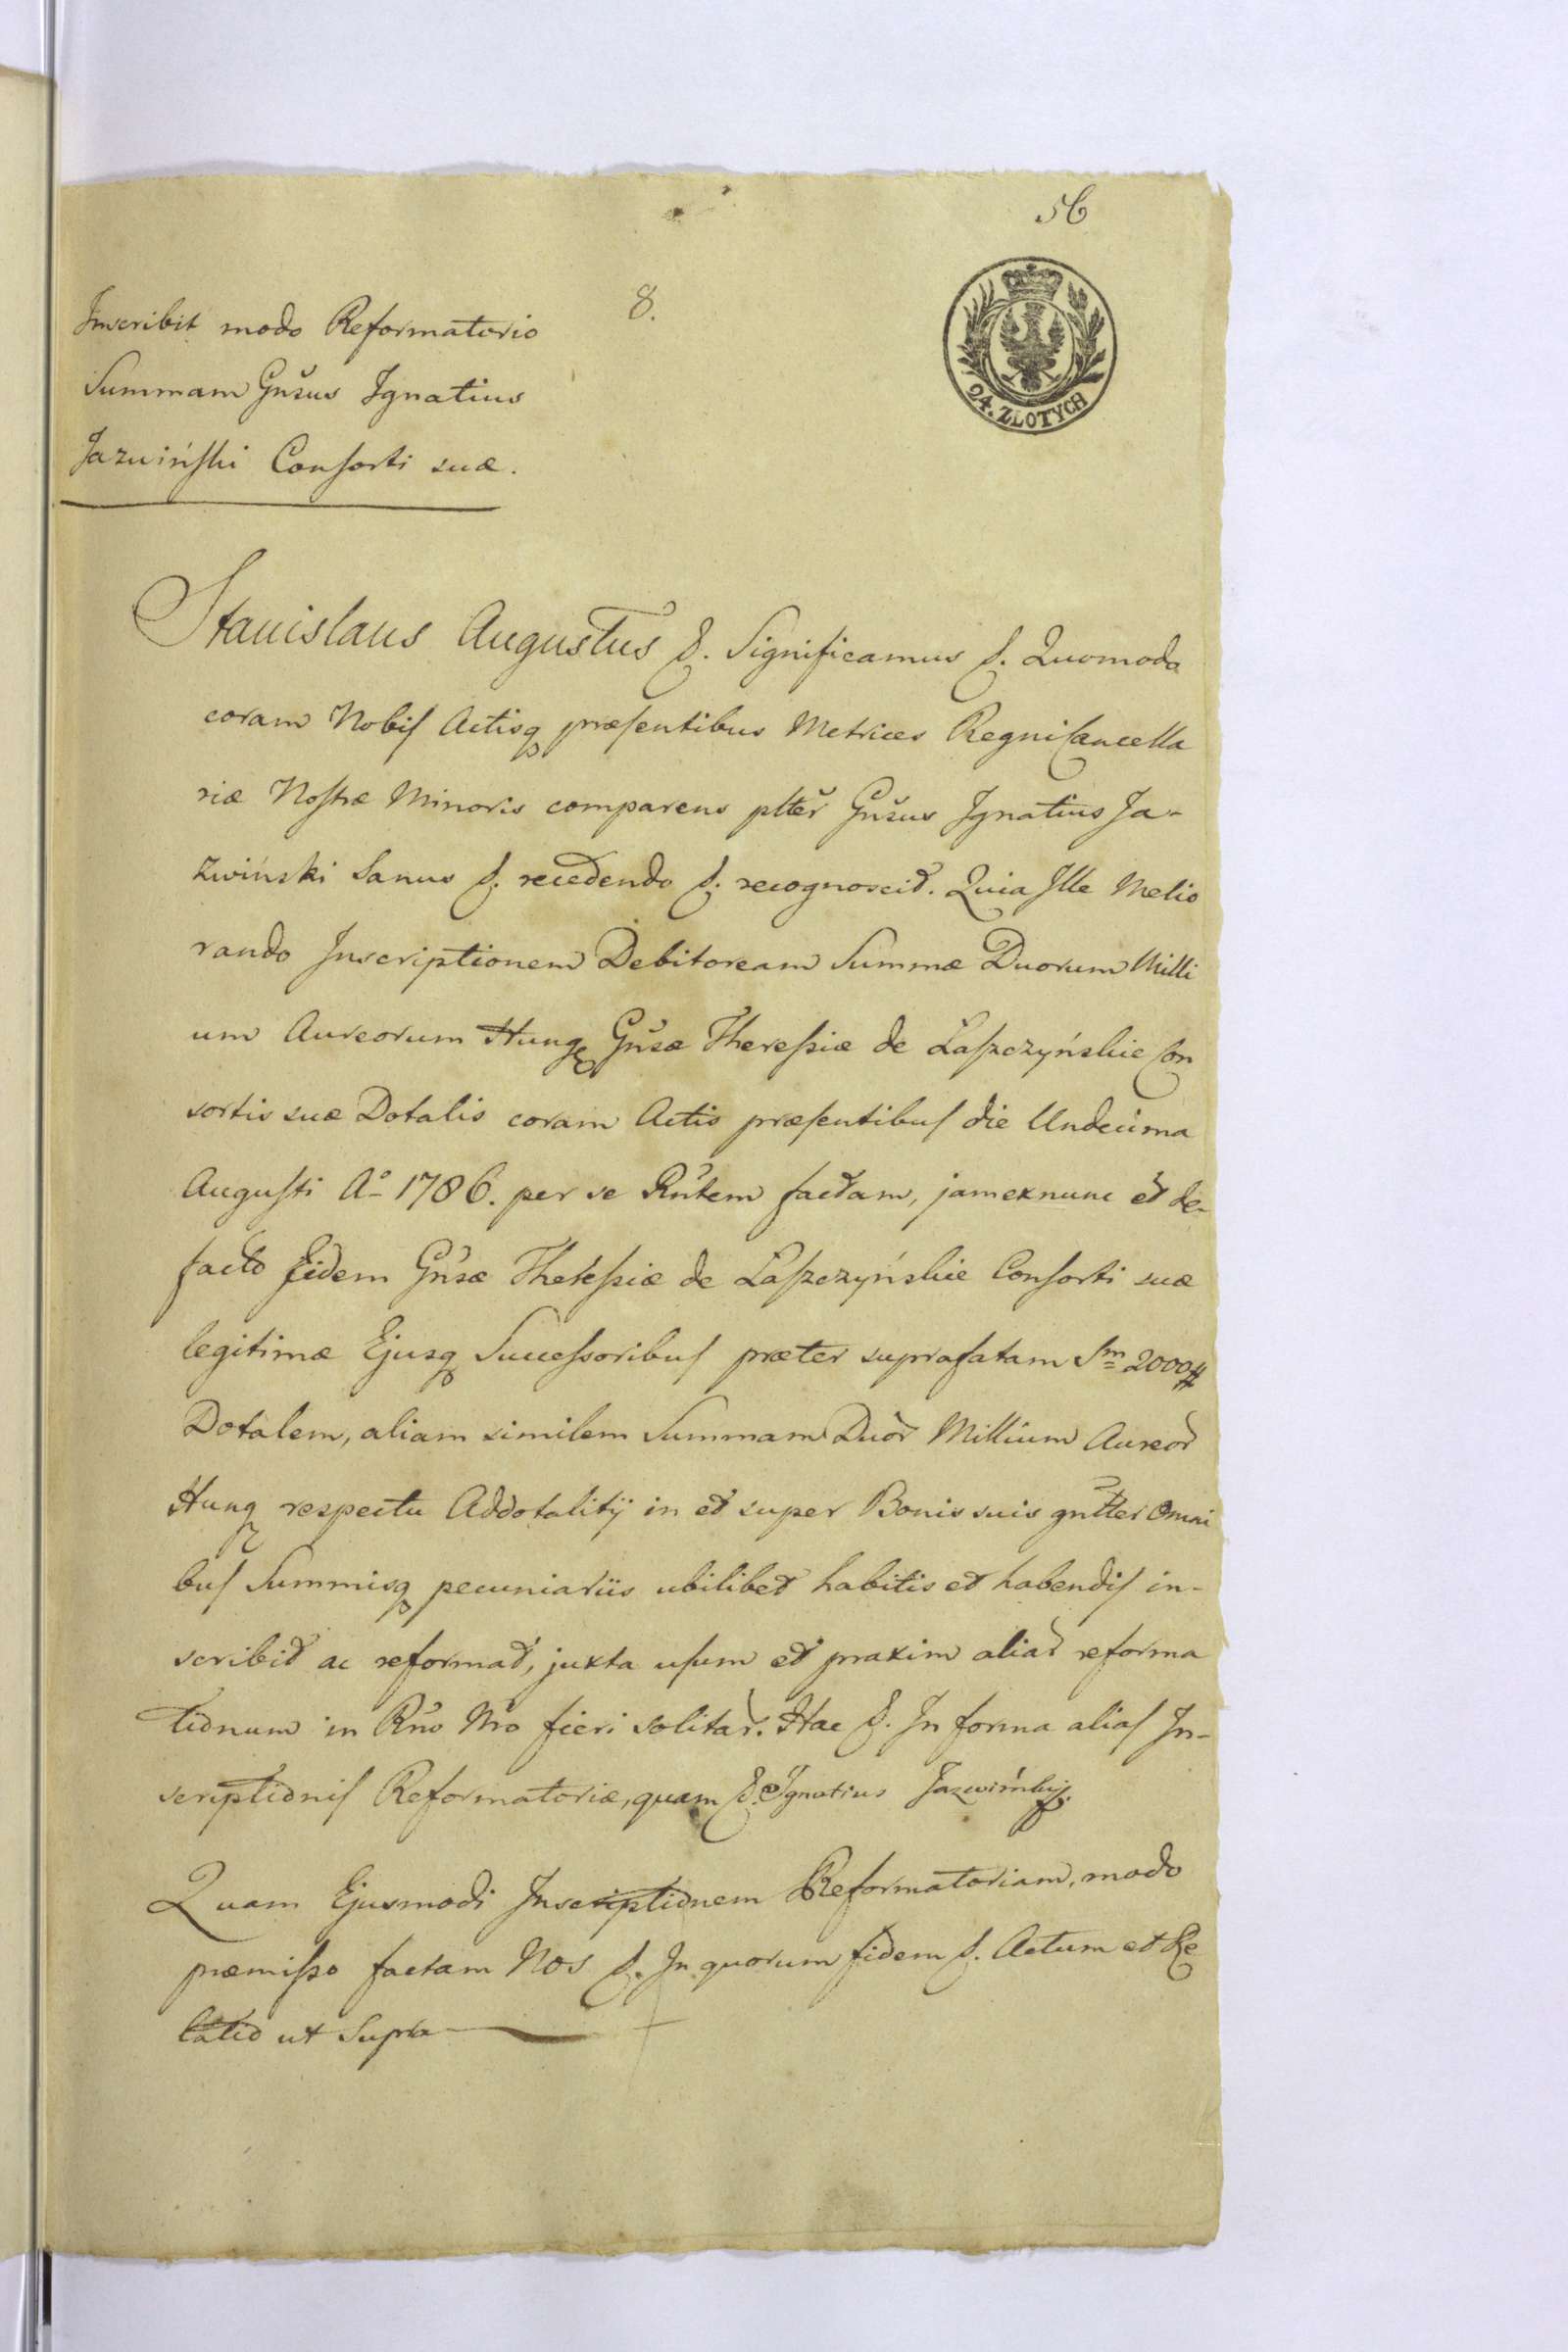 56
8.
24. ZŁOTYCH
Inscribit modo Reformatorio
Summam Gn̆sus Ignatius
Jazwiński Conſorti suæ.
Stanislaus Augustus &. Significamus &. Quomodo
coram Nobiſ Actisq præſentibus Metrices Regni Cancella
riæ Noſtræ Minoris comparens pltĕr Gn̆sus Ignatius Ja-
zwiński Sanus &. recedendo &. recognoscit. Quia Ille Melio
rando Inscriptionem Debitoream Summæ Duorum Milli
um Aureorum Hung Gn̆sæ Thereſsiæ de Łaſzczyńskie Con
sortis suæ Dotalis coram Actis præſentibuſ die Undecima
Auguſti Aº 1786. per se Rn̆tem factam, jamexnunc et de-
facto Eidem Gn̆sæ Thereſsiæ de Łaſzczyńskie Conſorti suæ
legitimæ Ejusq Succeſsoribuſ præter suprafatam Sm̱ 2000#
Dotalem, aliam similem Summam Duor̆ Millium Aureor̆
Hung respectu Addotalitÿ in et super Bonis suis gn̆tter Omni
buſ Summisq pecuniariis ubilibet habitis et habendiſ in-
scribit ac reformat, juxta uſum et praxim aliar̆ reforma
tiõnum in Rn̆o Nr̆o fieri solitar̆. Hac &. In forma aliaſ In-
scriptiõniſ Reformatoriæ, quam &. Ignatius Jazwińskj.
Quam Ejusmodi Inscriptiõnem Reformatoriam, modo
præmiſso factam Nos &. In quorum fidem &. Actum et Re
latiõ ut Supra